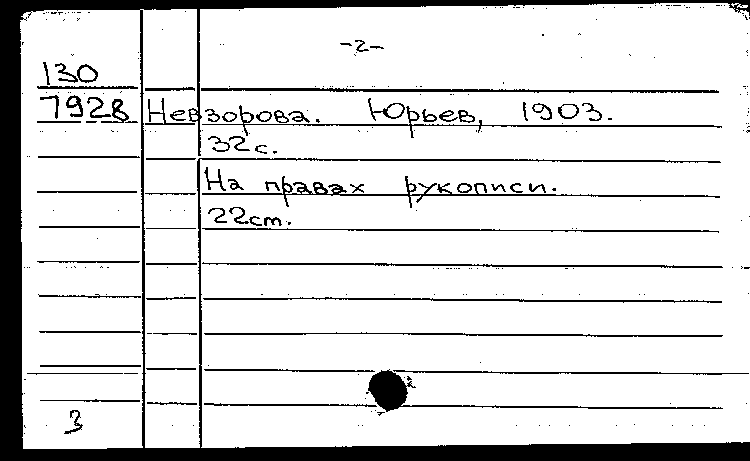 -2-
130
7928 Невзорова. Юрьев, 1903.
32с.
На правах рукописи.
22cm.
3